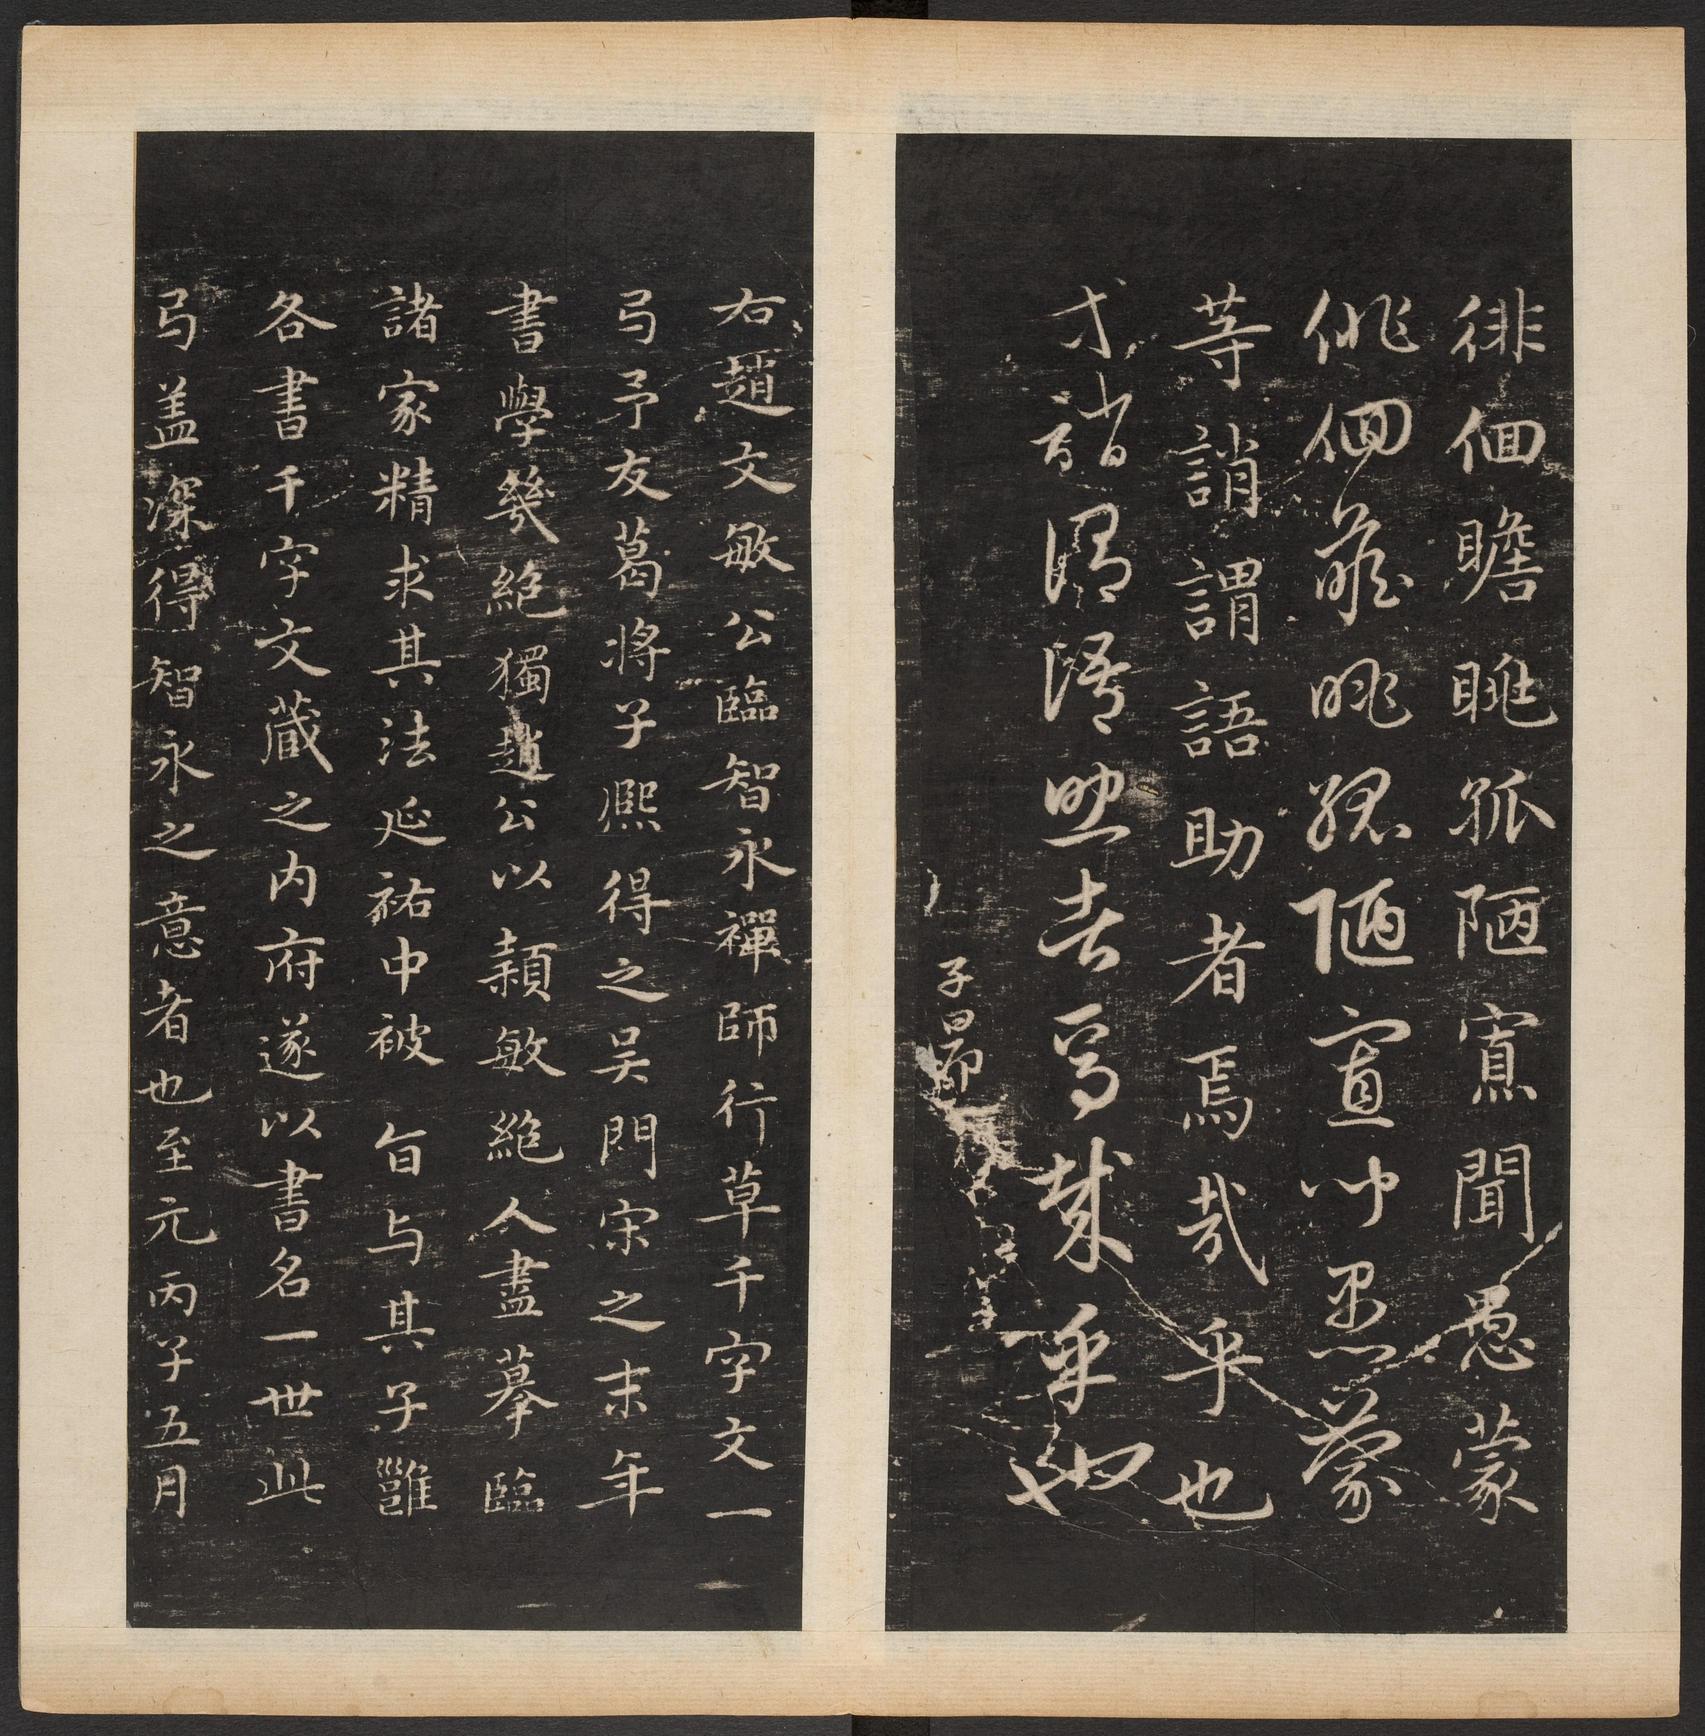 徘佪瞻眺孤陋寡聞愚蒙
徘佪瞻眺孤陋寡聞愚蒙
等誚謂語助者焉哉乎也
等誚謂語助者焉哉乎也
子昂
右趙文敏公臨智永禪師行草千字文一
弓予友葛將子熈得之吴門宋之末年
書學幾絶獨趙公以頴敏絶人盡摹臨
諸家精求其法延祐中被旨与其子雝
各書千字文藏之内府遂以書名一世此
弓盖深得智永之意者也至元丙子五月